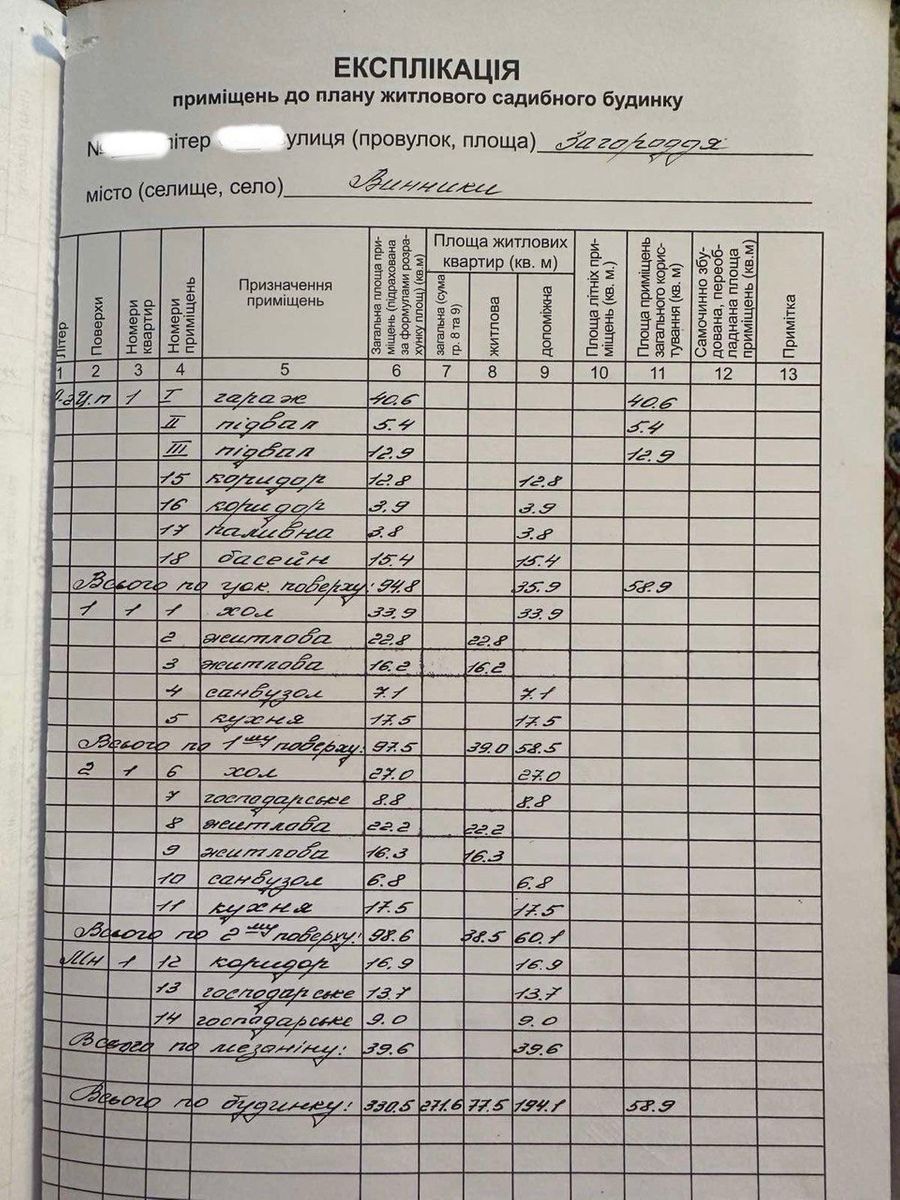 ЕКСПЛІКАЦІЯ
приміщень до плану житлового садибного будинку
№ літер вулиця (провулок, площа) Загороддя
місто (селище, село) Винники
Літер | Поверхи | Номери квартир | Номери приміщень | Призначення приміщень | Загальна площа приміщень (підрахована за формулами розрахунку площ) (кв.м) | Площа житлових квартир (кв. м) | загальна (сума гр. 8 та 9) | житлова | допоміжна | Площа літніх приміщень (кв. м.) | Площа приміщень загального користування (кв. м) | Самочинно збудована, переобладнана площа приміщень (кв.м) | Примітка
1 2 3 4 5 6 7 8 9 10 11 12 13
Ц.п 1 I гараж 40.6 40.6
II підвал 5.4 5.4
III підвал 12.9 12.9
15 коридор 12.8 12.8
16 коридор 3.9 3.9
17 паливна 3.8 3.8
18 басейн 15.4 15.4
Всього по цок. поверху: 94.8 35.9 58.9
1 1 1 хол 33.9 33.9
2 житлова 22.8 22.8
3 житлова 16.2 16.2
4 санвузол 7.1 7.1
5 кухня 17.5 17.5
Всього по 1му поверху: 97.5 39.0 58.5
2 1 6 хол 27.0 27.0
7 господарське 8.8 8.8
8 житлова 22.2 22.2
9 житлова 16.3 16.3
10 санвузол 6.8 6.8
11 кухня 17.5 17.5
Всього по 2му поверху: 98.6 38.5 60.1
Мн 1 12 коридор 16.9 16.9
13 господарське 13.7 13.7
14 господарське 9.0 9.0
Всього по мезаніну: 39.6 39.6
Всього по будинку: 330.5 271.6 77.5 194.1 58.9